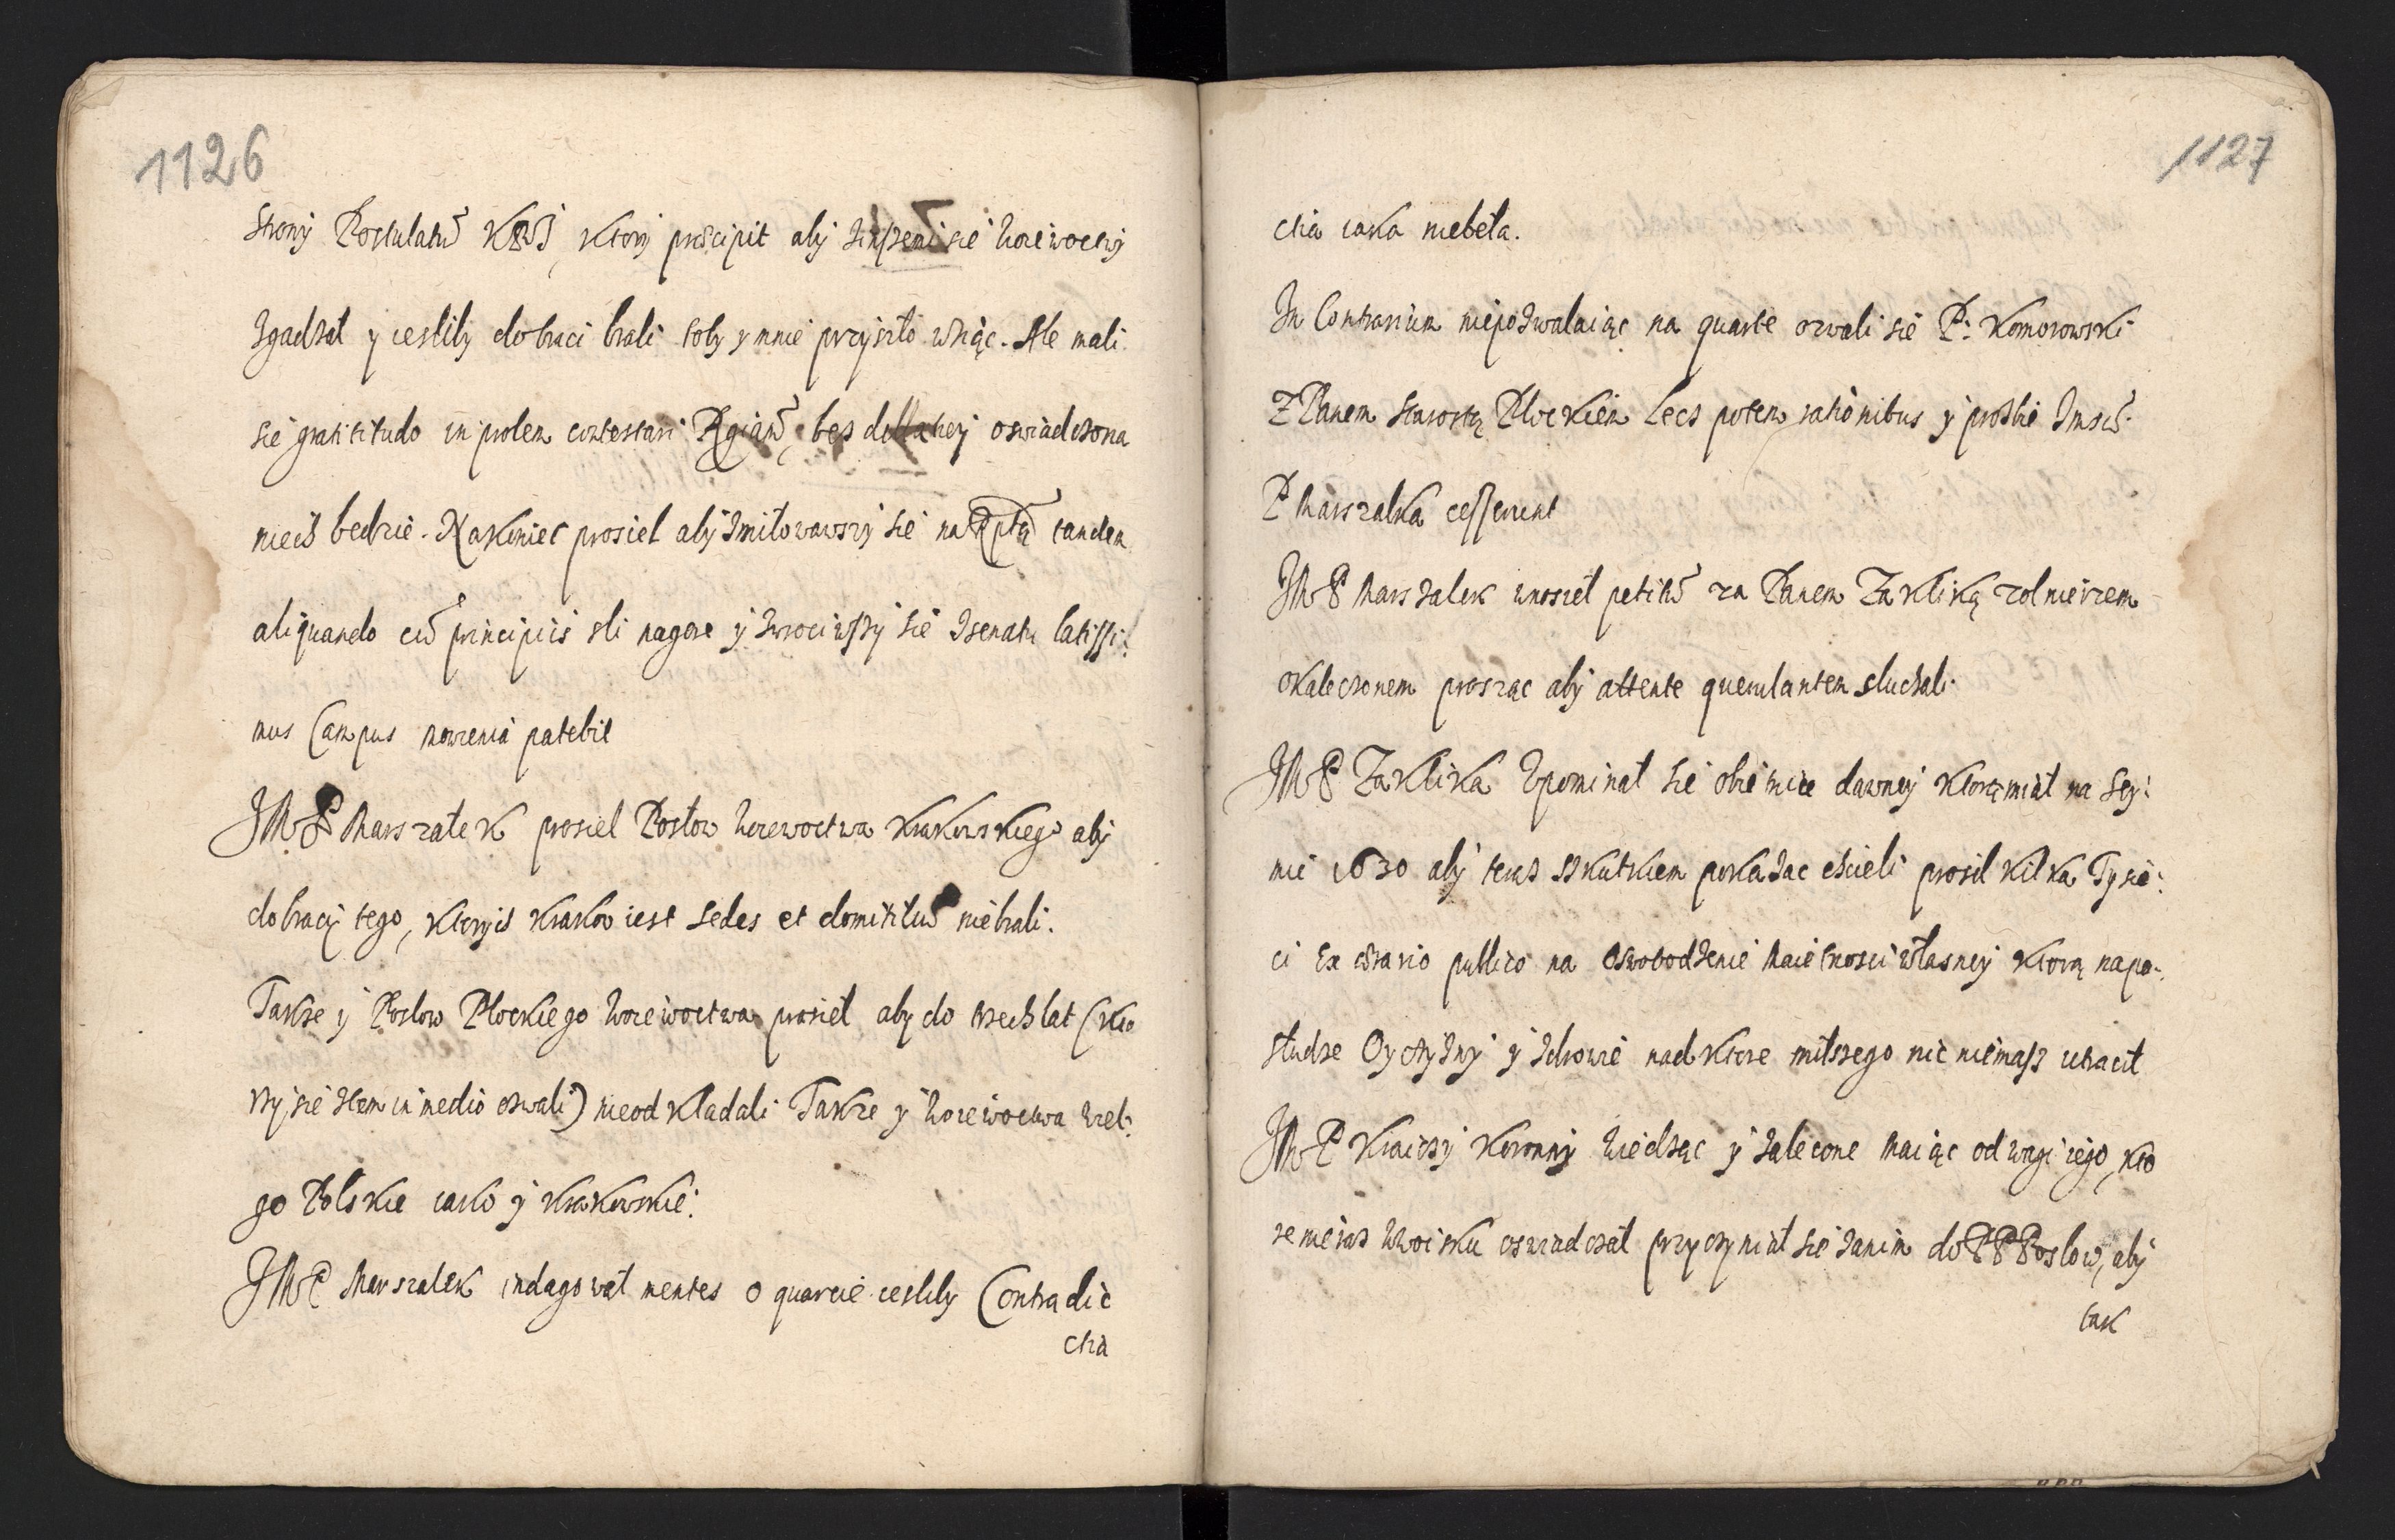 1126
strony Postulatũ KJM, ktory præcipit abym z inszemi się Woiewoctwy
zgadzał y iesliby do braci brali toby y mnie przyszło wziąc. Ale iesli
się gratitudo in prolem contestari Regiam, bez dellatiey oswiadczona
niech bedzie. Nakoniec prosieł aby zmiłowawszy się na Rptą tandem
aliquando cũ principiis sli nagore y zwrociwszy się z senatu latissi:
mus Campus mowienia patebit
JM P Marszałek prosieł Posłow Woiewoctwa Krakowskiego aby
do braciy tego, ktoryis Krakow iest sedes et domicilũ niebrali.
Takze y Posłow Plockiego Woiewoctwa prosieł aby do trzech lat (kto
rzy się stem in medio ozwali) nieodkładali Takze y Woiewoctwa Wiel:
go Polskie iako y Krakowskie.
JM P Marszalek indagował mentes o quarcie iesliby Contradic
ctia
1127
ctia iaka niebeła.
In Contrarium niepozwalaiąc na quarte ozwali się P: Komorowski
Z Panem Starostą Plockiem lecz potem rationibus y prozbie Jmsci
P Marszalka cesserunt
JM P Marszalek wnosieł petitũ za Panem Zakliką zolnierzem
okaleczonem prosząc aby attente querulantem sluchali.
JM P Zaklika Upominał się obietnice dawney ktorą miał na Sey:
mie 1630 aby teraz zskutkiem pokazac chcieli prosił kilka Tysię:
ci ex ærario publico na oswobodzenie Maietnosci własney ktorą na po:
słudze Oyczyzny y zdrowie nad ktore milszego nic niemasz utracił
JM P Kraiczy Koronny Wiedząc y zalecone Maiąc odwagi iego, kto
re nieraz w woisku oswiadczał przyczyniał się zanim do PP Poslow, aby
tak